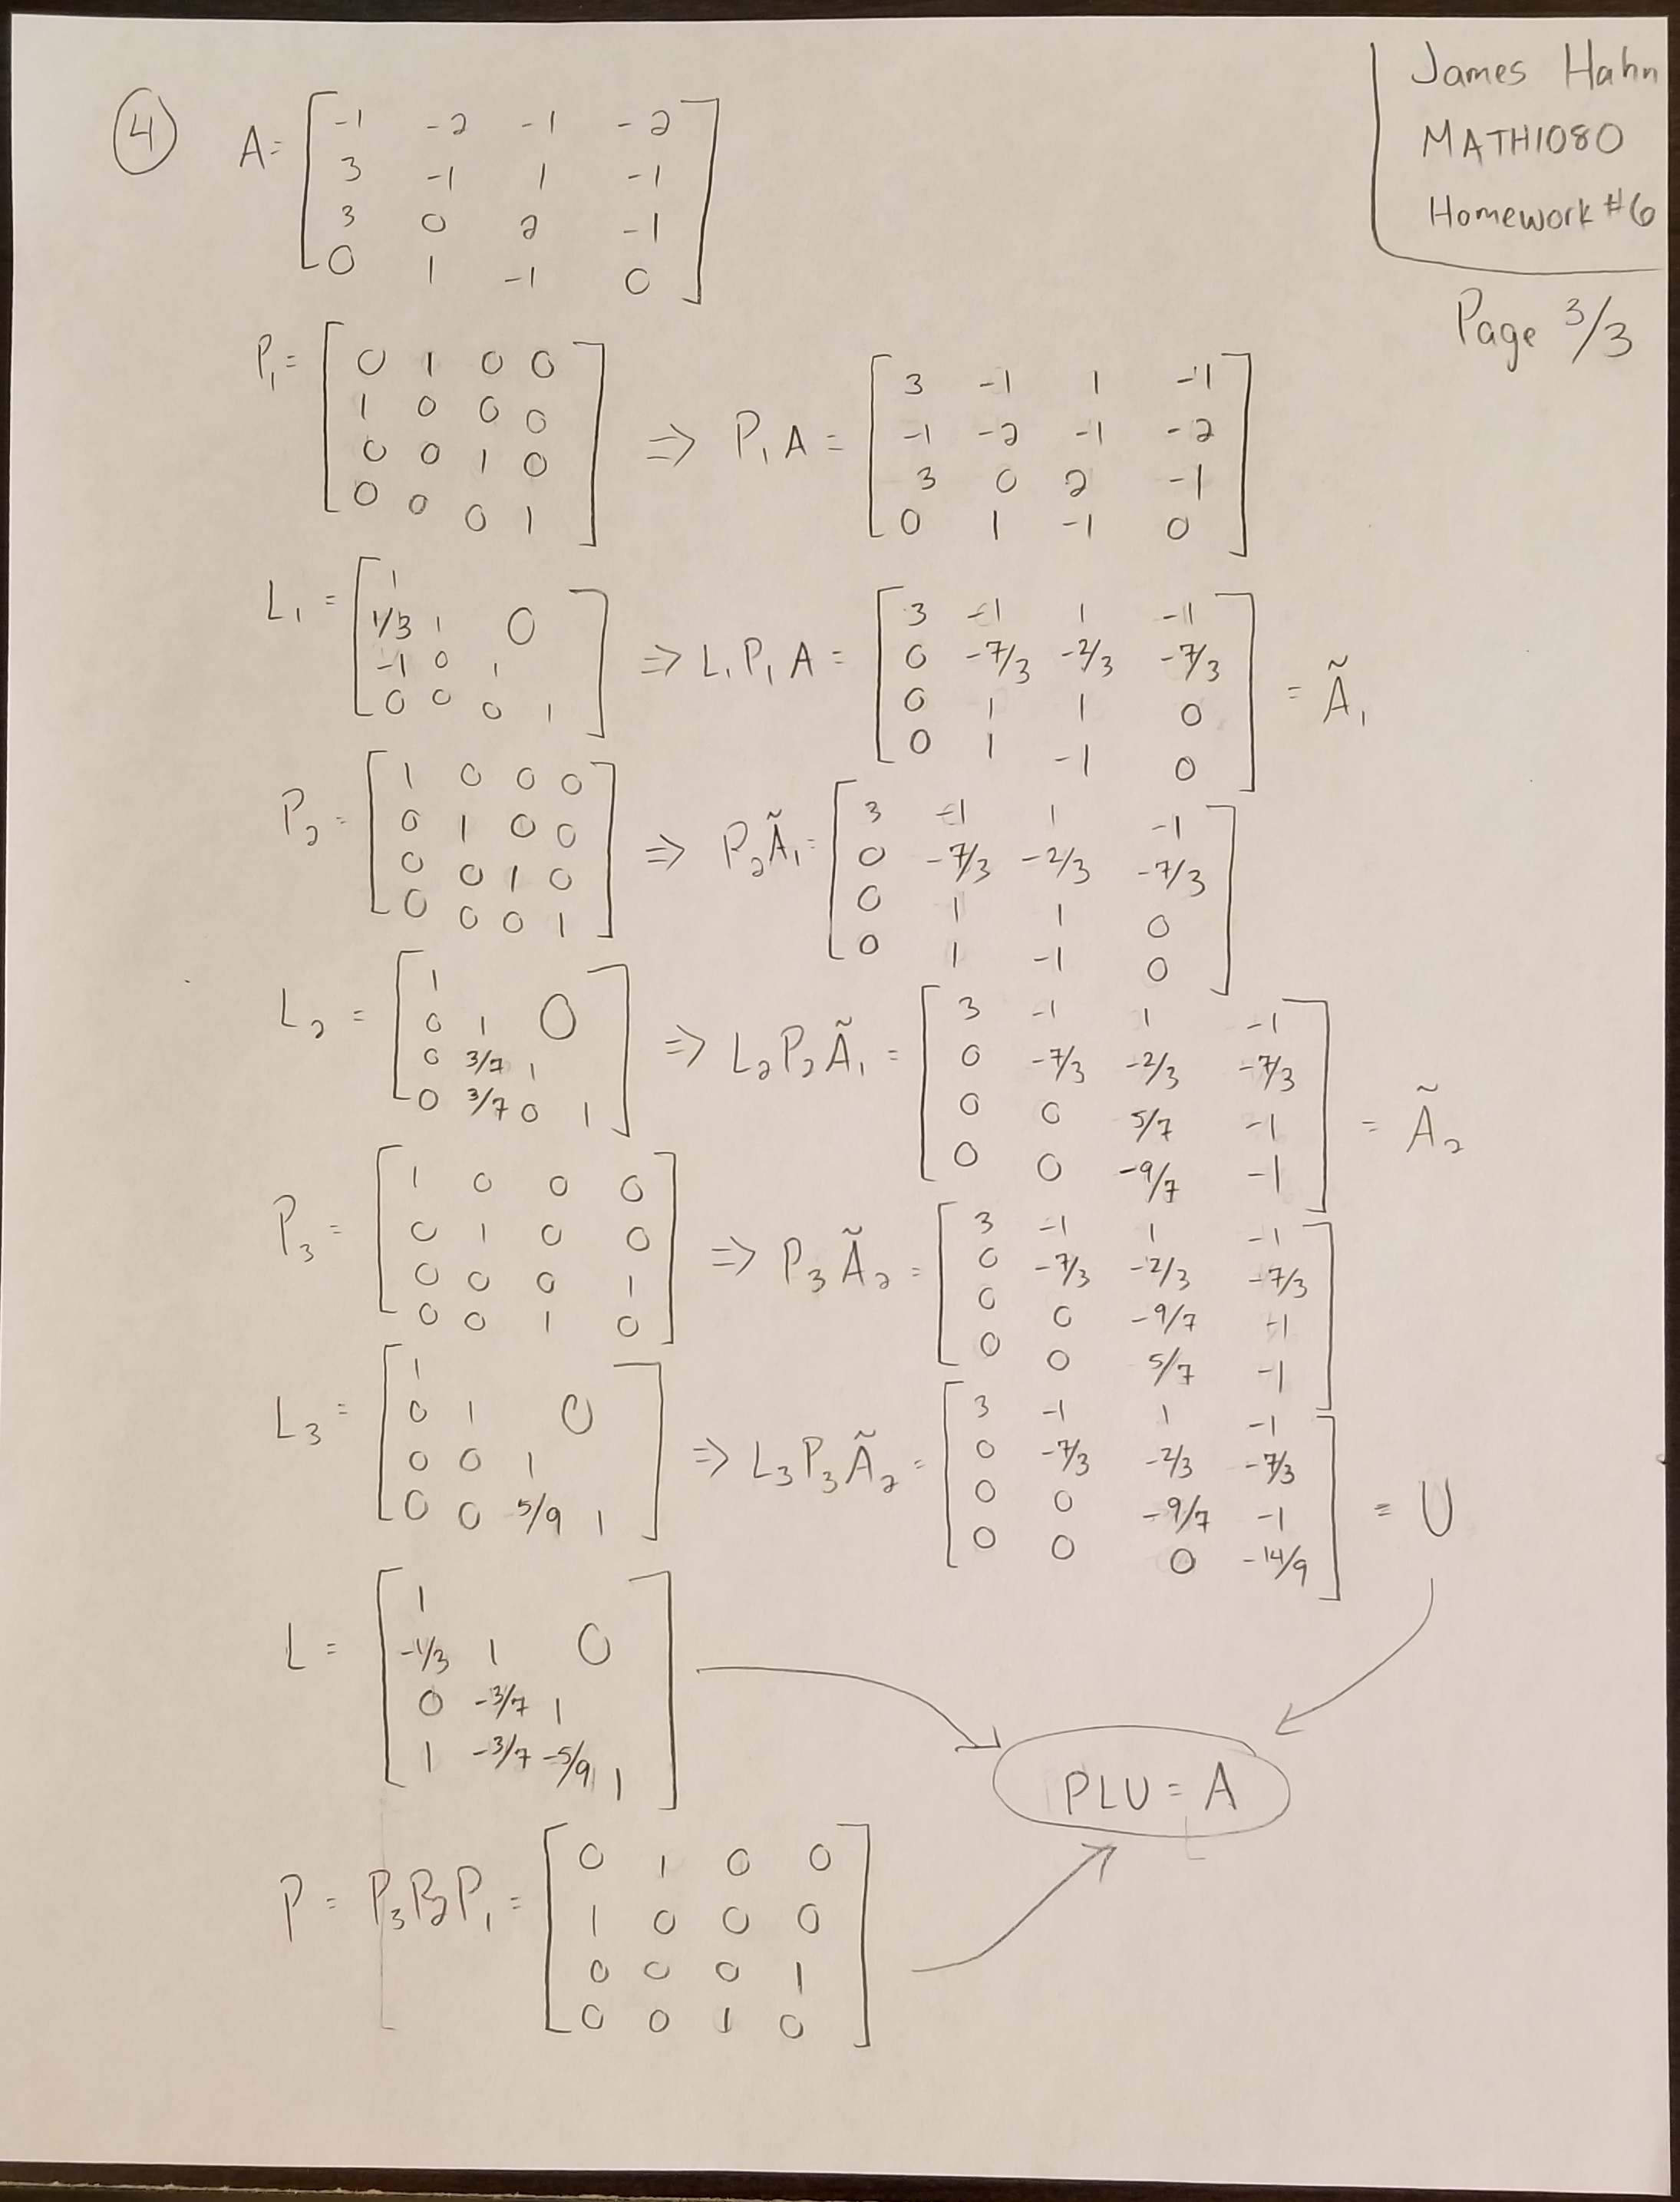 James Hahn
MATH1080
Homework #6
Page 3/3
④ A = [ -1 -2 -1 -2
3 -1 1 -1
3 0 2 -1
0 1 -1 0 ]
P₁ = [ 0 1 0 0
1 0 0 0
0 0 1 0
0 0 0 1 ]
⇒ P₁A = [ 3 -1 1 -1
-1 -2 -1 -2
3 0 2 -1
0 1 -1 0 ]
L₁ = [ 1
1/3 1 0
-1 0 1
0 0 0 1 ]
⇒ L₁P₁A = [ 3 -1 1 -1
0 -7/3 -2/3 -7/3
0 1 1 0
0 1 -1 0 ] = Ã₁
P₂ = [ 1 0 0 0
0 1 0 0
0 0 1 0
0 0 0 1 ]
⇒ P₂Ã₁ = [ 3 -1 1 -1
0 -7/3 -2/3 -7/3
0 1 1 0
0 1 -1 0 ]
L₂ = [ 1
0 1 0
0 3/7 1
0 3/7 0 1 ]
⇒ L₂P₂Ã₁ = [ 3 -1 1 -1
0 -7/3 -2/3 -7/3
0 0 5/7 -1
0 0 -9/7 -1 ] = Ã₂
P₃ = [ 1 0 0 0
0 1 0 0
0 0 0 1
0 0 1 0 ]
⇒ P₃Ã₂ = [ 3 -1 1 -1
0 -7/3 -2/3 -7/3
0 0 -9/7 -1
0 0 5/7 -1 ]
L₃ = [ 1
0 1 0
0 0 1
0 0 5/9 1 ]
⇒ L₃P₃Ã₂ = [ 3 -1 1 -1
0 -7/3 -2/3 -7/3
0 0 -9/7 -1
0 0 0 -14/9 ] = U
L = [ 1
-1/3 1 0
0 -3/7 1
1 -3/7 -5/9 1 ]
PLU = A
P = P₃P₂P₁ = [ 0 1 0 0
1 0 0 0
0 0 0 1
0 0 1 0 ]